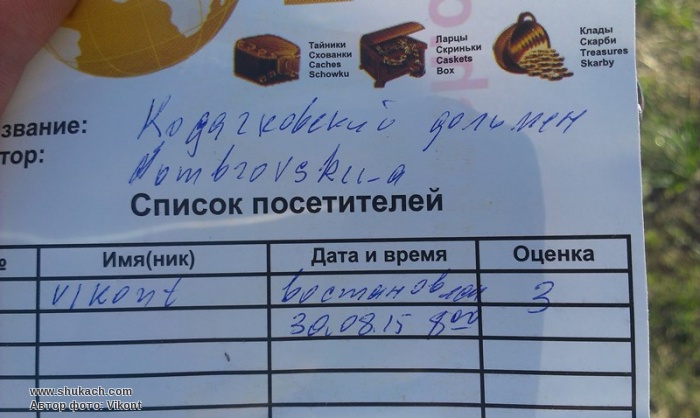 Тайники
Схованки
Caches
Schowku
Ларцы
Скриньки
Caskets
Box
Клады
Скарби
Treasures
Skarby
звание: Кодачковский долимен
тор: Dombrovsku-a
Список посетителей
№ Имя(ник) Дата и время Оценка
vikont востановлен 3
30.08.15 800
www.shukach.com
Автор фото: Vikont